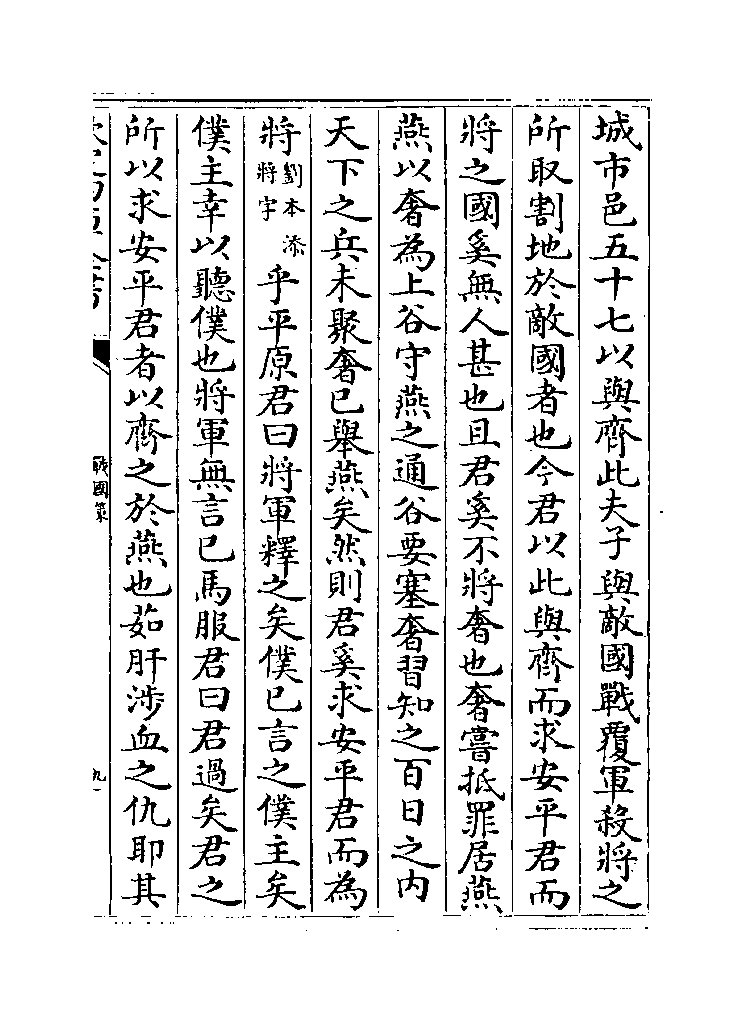 城市邑五十七以與齊此夫子與敵國戰覆軍殺將之
所取割地於敵國者也今君以此與齊而求安平君而
將之國奚無人甚也且君奚不將奢也奢嘗抵罪居燕
燕以奢為上谷守燕之通谷要塞奢習知之百日之內
天下之兵未聚奢已舉燕矣然則君奚求安平君而為
將劉本添將字乎平原君曰將軍釋之矣僕已言之僕主矣
僕主幸以聽僕也將軍無言已馬服君曰君過矣君之
所以求安平君者以齊之於燕也茹肝涉血之仇耶其
戰國策
九